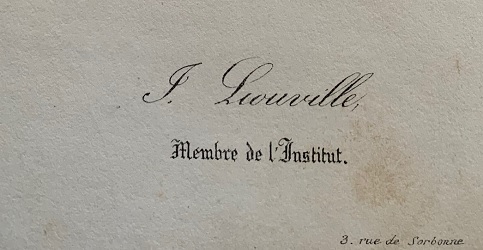 J. Liouville,
Membre de l'Institut.
3. rue de Sorbonne